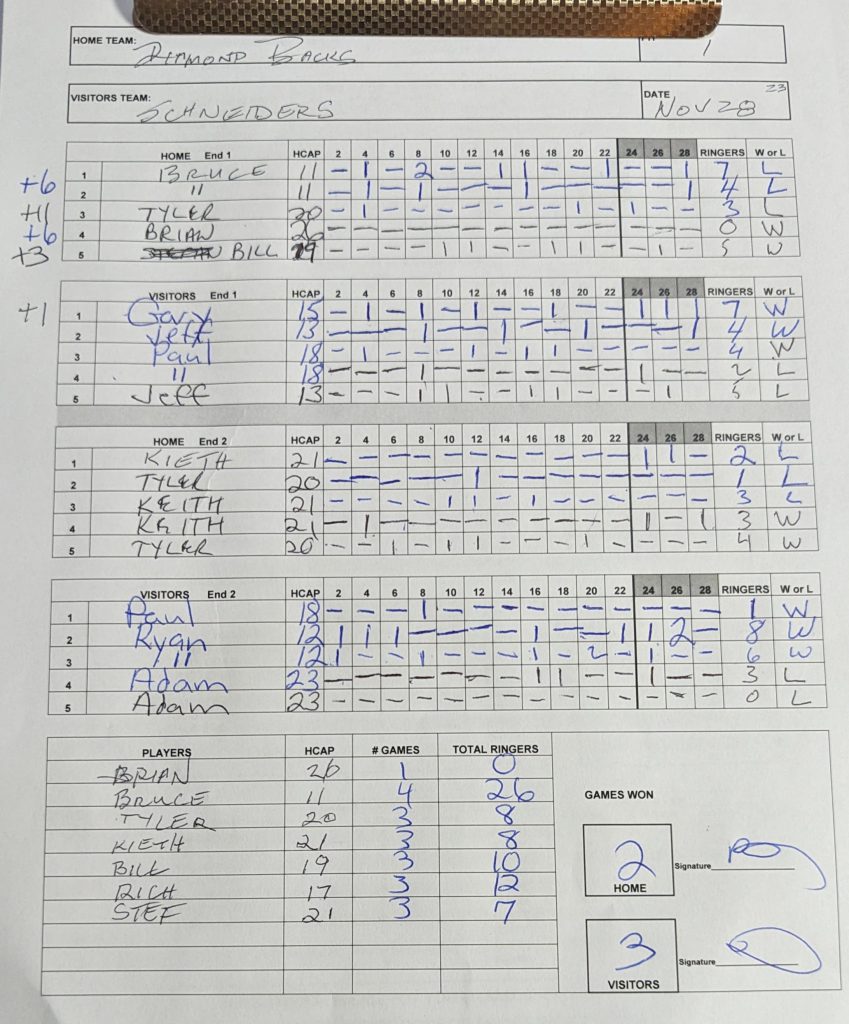 HOME TEAM: DIAMOND BACKS 1
VISITORS TEAM: SCHNEIDERS DATE NOV 28 23
HOME End 1 HCAP 2 4 6 8 10 12 14 16 18 20 22 24 26 28 RINGERS W or L
1 BRUCE 11 – 1 – 2 – – 1 1 – – 1 – – 1 7 L
+6 2 " 11 – 1 – 1 – – – 1 – – – – – 1 4 L
+11 3 TYLER 20 – 1 – – – – – – – 1 – 1 – – 3 L
+6 4 BRIAN 26 – – – – – – – – – – – – – – 0 W
+3 5 BILL 19 – – – – 1 1 – – 1 1 – – 1 – 5 W
VISITORS End 1 HCAP 2 4 6 8 10 12 14 16 18 20 22 24 26 28 RINGERS W or L
+1 1 Gary 15 – 1 – 1 – 1 – – 1 – – 1 1 1 7 W
2 Jeff 13 – – – 1 – – 1 – – 1 – – – 1 4 W
3 Paul 18 – 1 – – – 1 – 1 1 – – – – – 4 W
4 " 18 – – – 1 – – – – – – – 1 – – 2 L
5 Jeff 13 – – – 1 1 – – 1 1 – – – 1 – 5 L
HOME End 2 HCAP 2 4 6 8 10 12 14 16 18 20 22 24 26 28 RINGERS W or L
1 KIETH 21 – – – – – – – – – – – 1 1 – 2 L
2 TYLER 20 – – – – – 1 – – – – – – – – 1 L
3 KEITH 21 – – – – 1 1 – 1 – – – – – – 3 L
4 KEITH 21 – 1 – – – – – – – – – 1 – 1 3 W
5 TYLER 20 – – 1 – 1 1 – – – 1 – – – – 4 W
VISITORS End 2 HCAP 2 4 6 8 10 12 14 16 18 20 22 24 26 28 RINGERS W or L
1 Paul 18 – – – 1 – – – – – – – – – – 1 W
2 Ryan 12 1 1 1 – – – – 1 – – 1 1 2 – 8 W
3 " 12 1 – – 1 – – – 1 – 2 – 1 – – 6 W
4 Adam 23 – – – – – – – 1 1 – – 1 – – 3 L
5 Adam 23 – – – – – – – – – – – – – – 0 L
PLAYERS HCAP # GAMES TOTAL RINGERS
BRIAN 26 1 0
BRUCE 11 4 26
TYLER 20 3 8
KIETH 21 3 8
BILL 19 3 10
RICH 17 3 12
STEF 21 3 7
GAMES WON
2
HOME
Signature
3
VISITORS
Signature